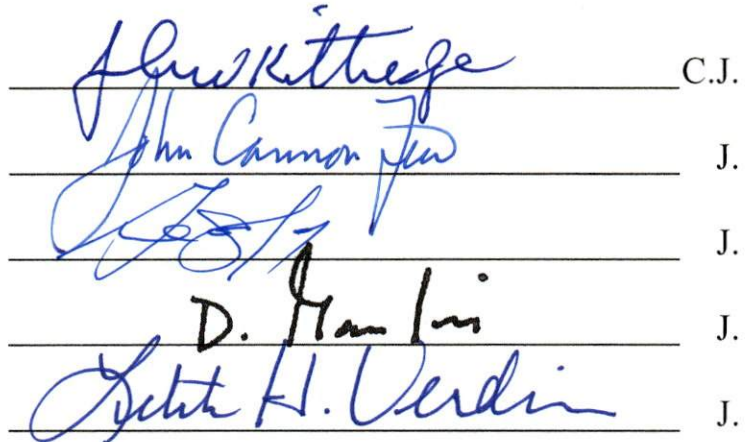 John W Kittredge C.J.
John Cannon Few J.
J.
D. J.
Letitia H. Verdin J.